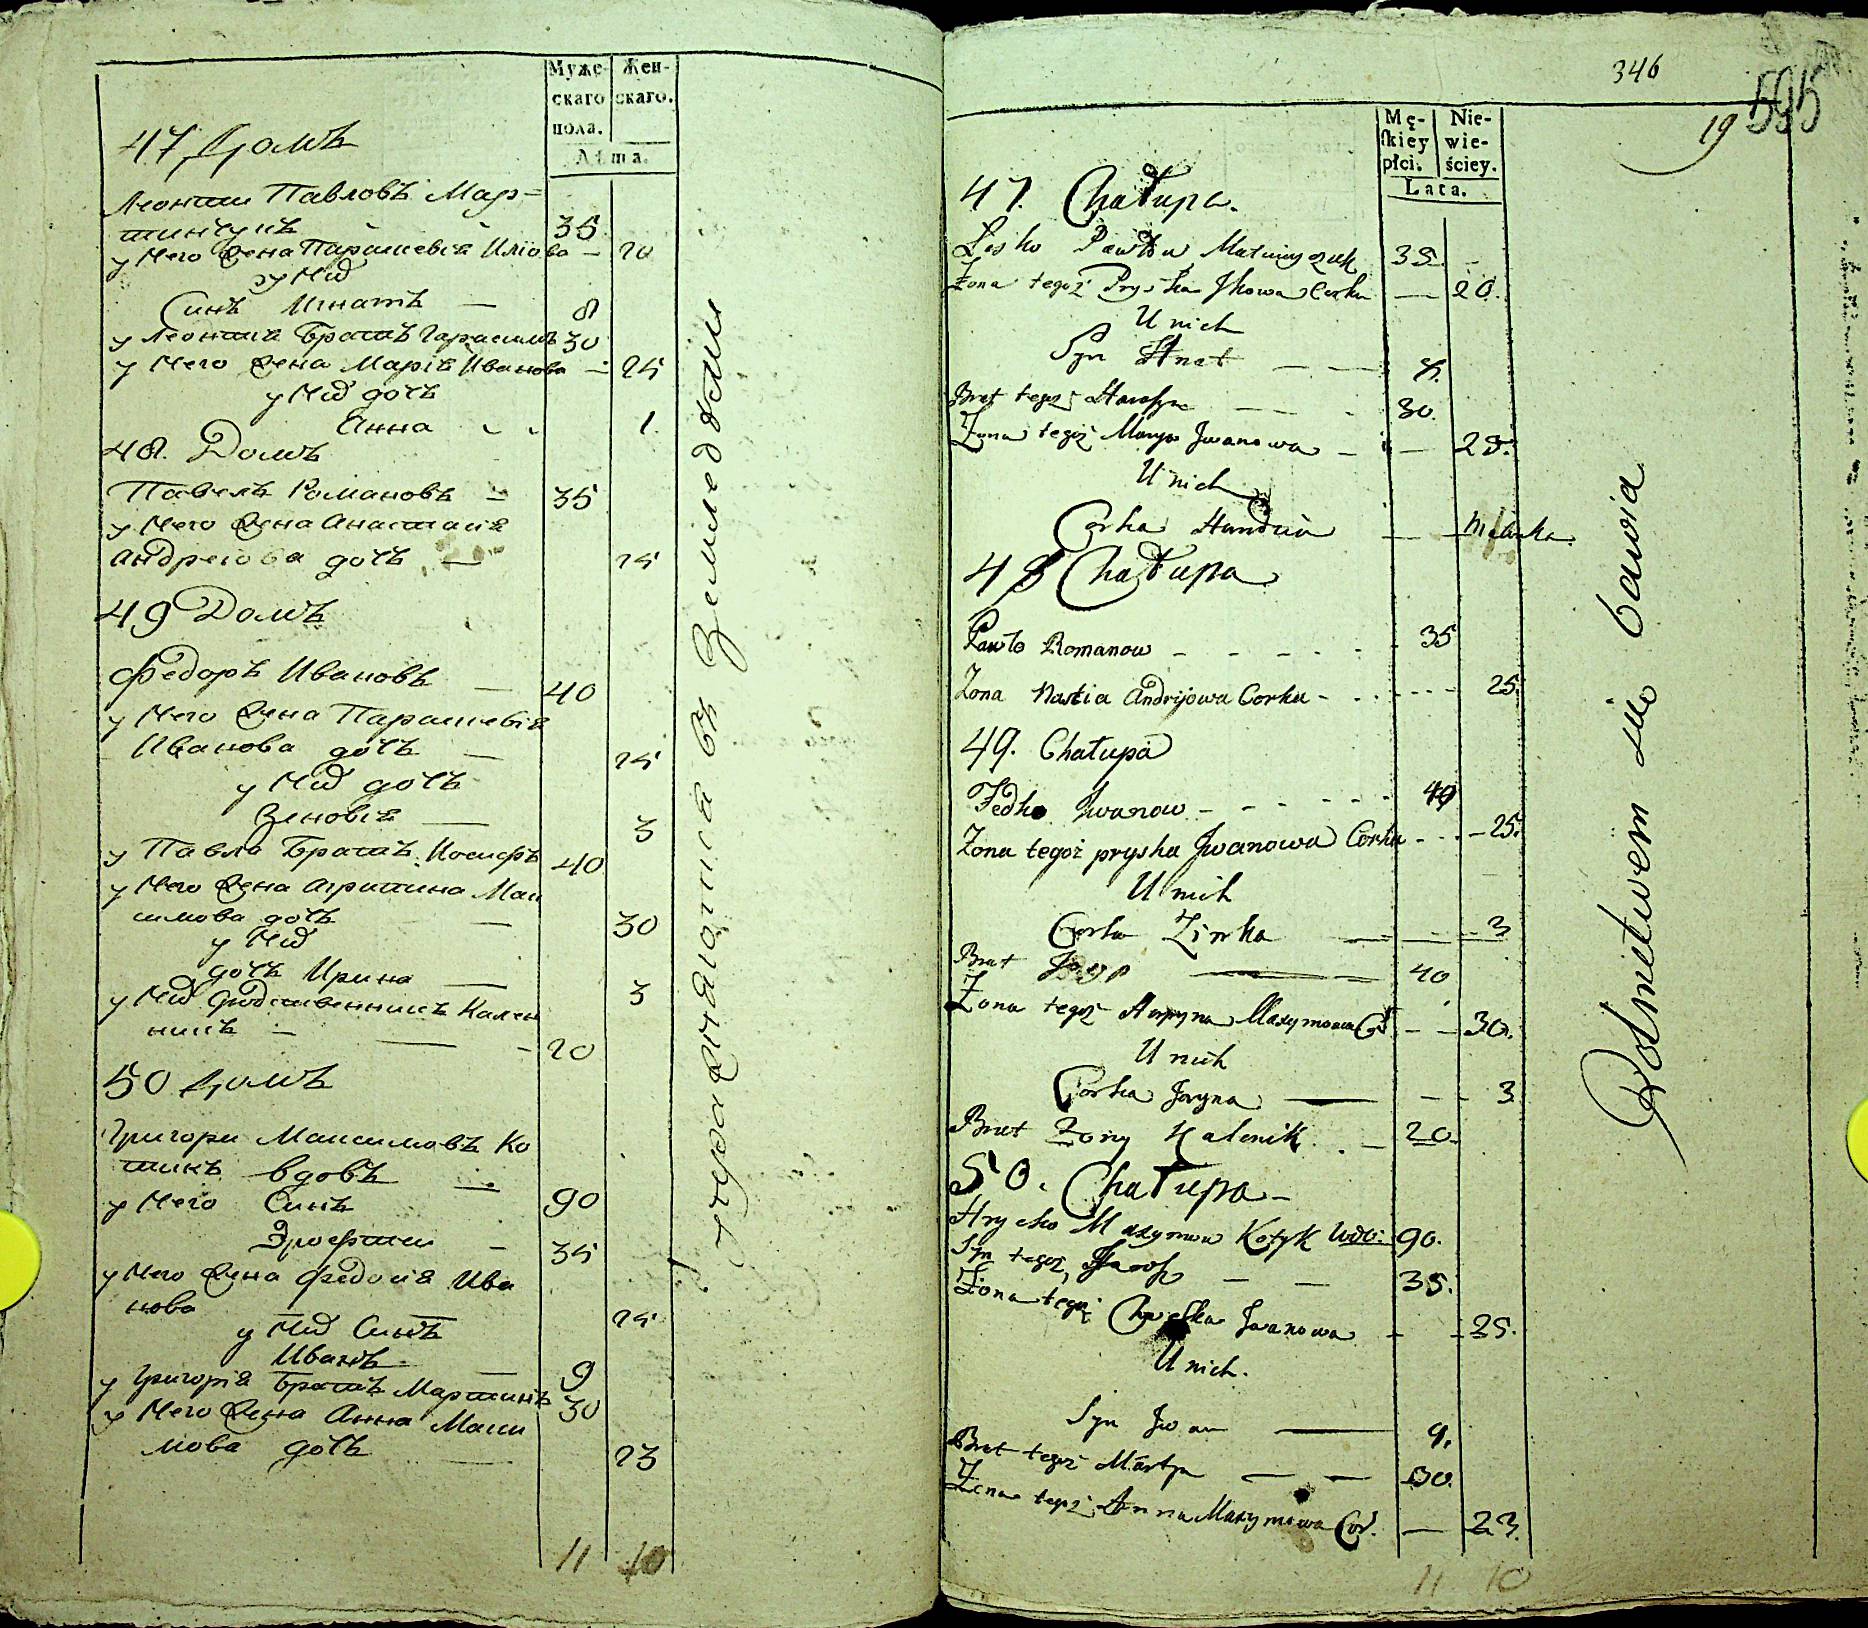 Муже- Жен-
скаго скаго.
пола.
Лѣта.
47 Домъ
Леонти Павловъ Мар=
тинчукъ 35
у Него Жена Парашевія Иліова — 20
у Них
Синъ Игнатъ — 8
у Леонтія Братъ Гарасимъ 30
у Него Жена Марія Иванова — 25
у Них дочъ
Анна 1
48. Домъ
Павелъ Романовъ — 35
у Него Жена Анастасія
Андреюва дочъ — 25
49 Домъ
Федоръ Ивановъ — 40
у Него Жена Парашевія
Иванова дочъ — 25
у Них дочъ
Зеновія — 3
у Павла Братъ Иосифъ 40
у Него Жена Агрипина Мак
симова дочъ — 30
у Них
дочъ Ирина — 3
у Них родственникъ Кален
никъ — 20
50 Домъ
Григори Максимовъ Ко
тикъ вдовъ — 90
у Него Синъ
Ерофтей — 35
у Него Жена Федосія Ива
нова 25
у Них Синъ
Иванъ — 9
у Григорія Братъ Мартинъ 30
у Него Жена Анна Макси
мова дочъ — 23
11 10
Упражняются въ Земледелии
346
595
19
Mę- Nie-
skiey wie-
płci. ściey.
Lata.
47. Chałupa.
Lesko Pawłow Martinyszuk 35. —
Żona tegoż Pryska Jlkowa Corka — 20.
U nich
Syn Hnat — — 8.
Brat tegoż Harasym — — 30.
Żona tegoż Marya Jwanowa — — 25.
U nich
Corka Handzia — — Malinka.
48 Chałupa
Pawło Romanow - - - - - 35
Zona Nastia Andryjowa Corka - - - - - 25.
49. Chałupa
Fedko Jwanow - - - - - 40
Zona tegoż pryska Jwanowa Corka - - - 25.
U nich
Corka Zinka — — — 3
Brat Josyp — 40
Żona tegoż Harpyna Maxymowa Cor. — — 30.
U nich
Corka Jaryna — — - 3
Brat Zony Kalenik . — 20.
50. Chałupa —
Hrycko Maxymow Kotyk Wdo: 90.
Syn tegoż, — — 35.
Żona tegoż Chweska Jwanowa - — 25.
U nich.
Syn Jwan — 9.
Brat tegoż Martyn — — 30.
Żona tegoż Anna Maxymowa Cor. — 23.
11 10
Rolnictwem się bawią